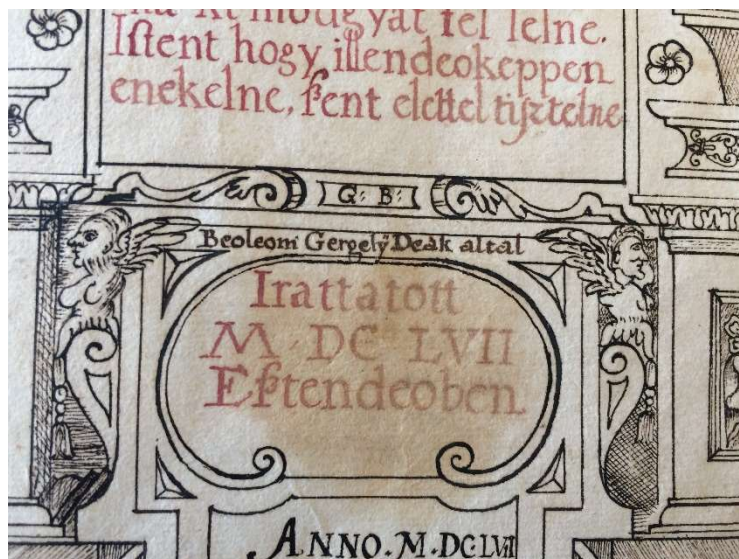 modgyat fel lelne.
Istent hogy illendeokeppen
enekelne, szent elettel tisztelne
G: B:
Beoleoni Gergelÿ Deák altal
Irattatott
M DC LVII
Esztendeoben
ANNO. M. DCLVII